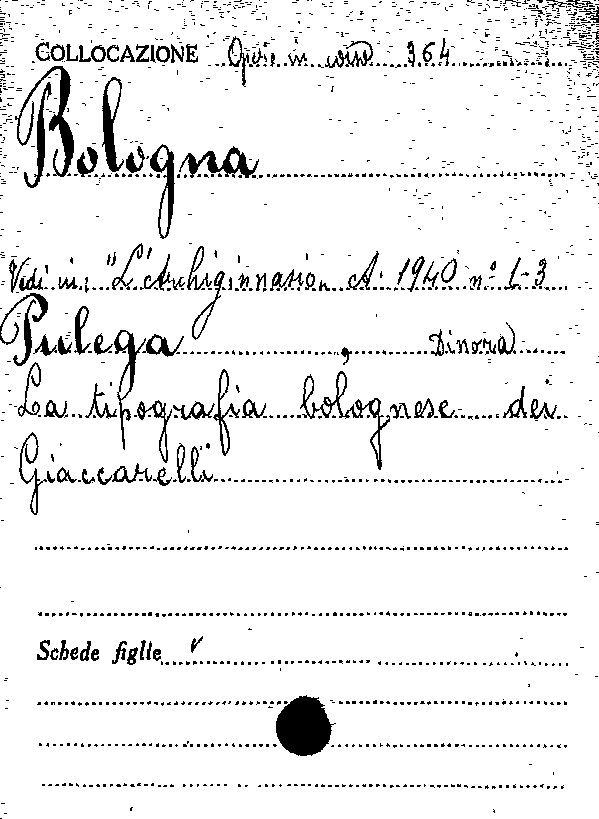 COLLOCAZIONE Opere in cons 364
Bologna
Vedi in: "L'Archiginnasio„ A. 1940 n° 1-3
Pulega, Dinora
La tipografia bolognese dei
Giaccarelli
Schede figlie v